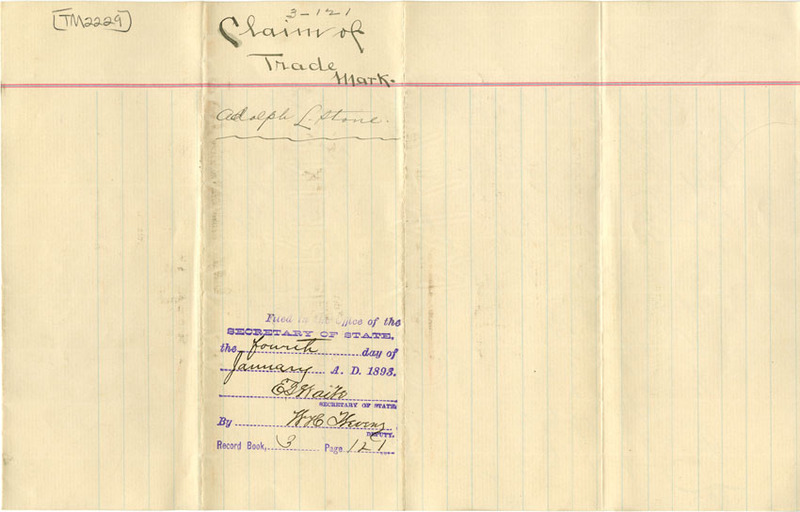 [TM2229]
3-121
Claim of
Trade
Mark.
Adolph L. Stone.
Filed in the Office of the
SECRETARY OF STATE,
the fourth day of
January A. D. 1893.
E D Waite
SECRETARY OF STATE
By W H C
DEPUTY.
Record Book, 3 Page 121